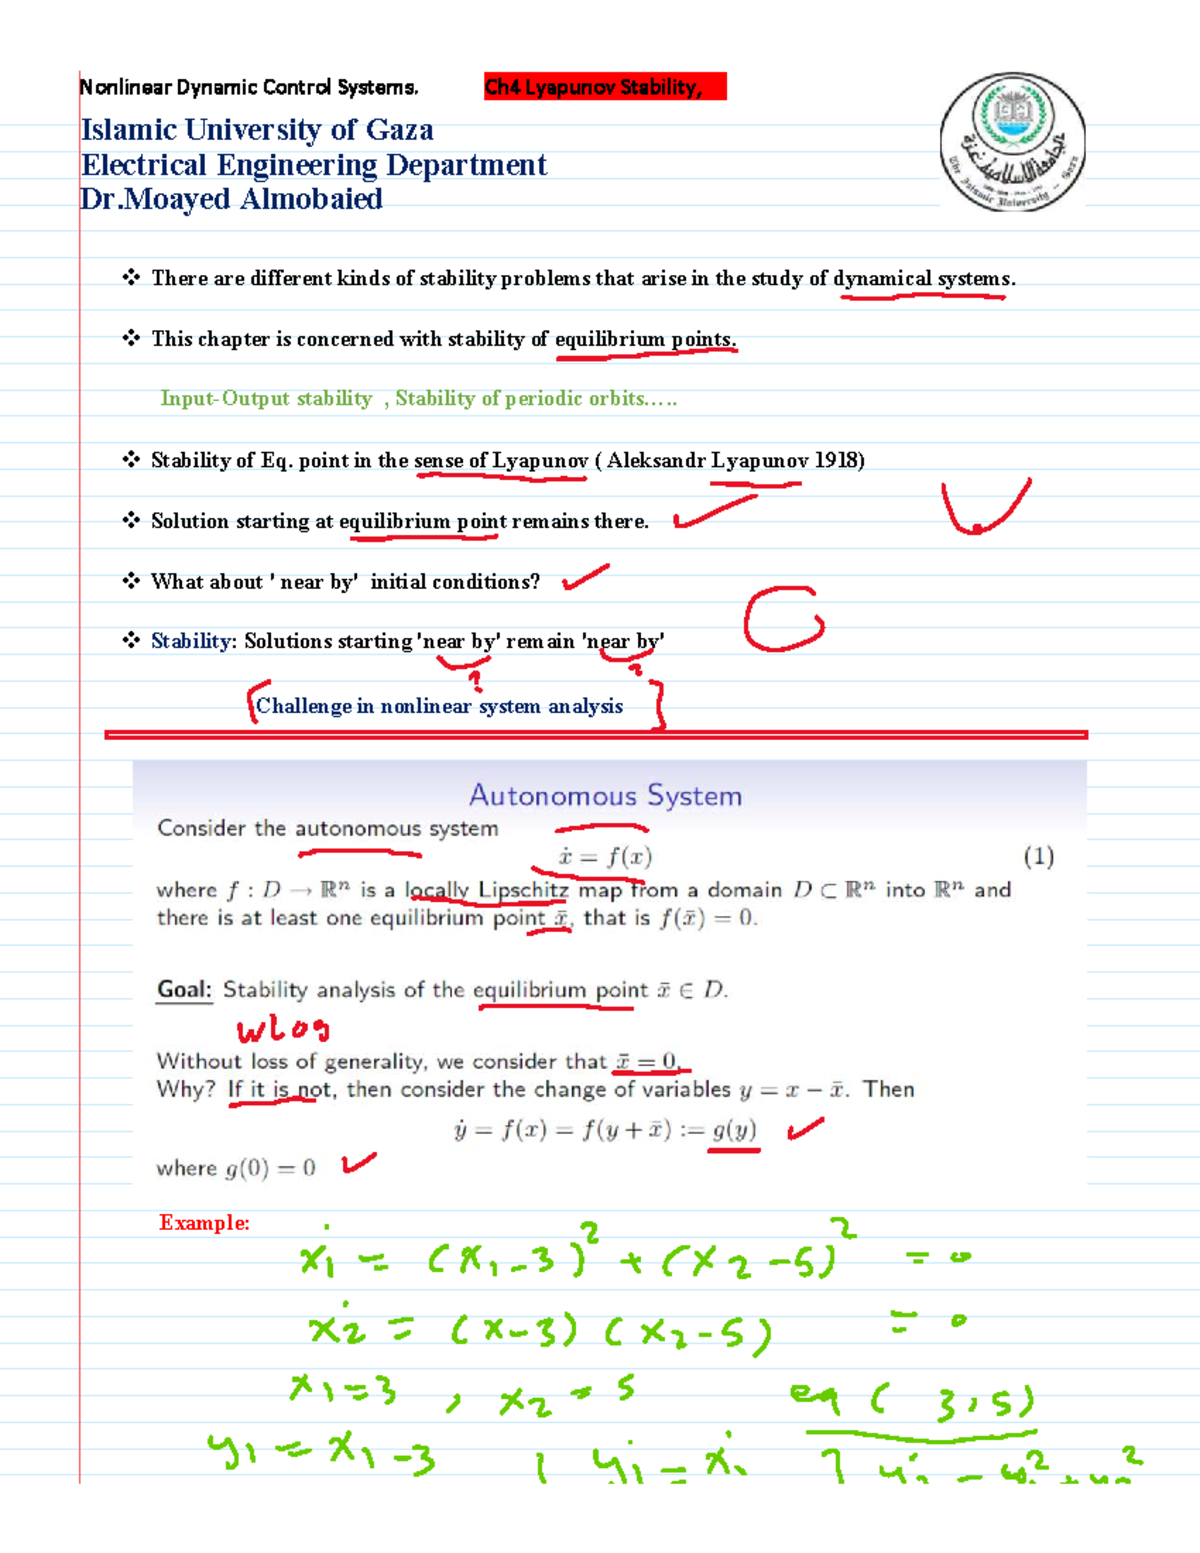 Nonlinear Dynamic Control Systems. Ch4 Lyapunov Stability,
Islamic University of Gaza
Electrical Engineering Department
Dr.Moayed Almobaied
الجامعة الإسلامية غزة
The Islamic University - Gaza
❖ There are different kinds of stability problems that arise in the study of dynamical systems.
❖ This chapter is concerned with stability of equilibrium points.
Input-Output stability , Stability of periodic orbits…..
❖ Stability of Eq. point in the sense of Lyapunov ( Aleksandr Lyapunov 1918)
❖ Solution starting at equilibrium point remains there. ✓
❖ What about ' near by' initial conditions? ✓
❖ Stability: Solutions starting 'near by' remain 'near by'
? ?
Challenge in nonlinear system analysis
Autonomous System
Consider the autonomous system
ẋ = f(x) (1)
where f : D → ℝⁿ is a locally Lipschitz map from a domain D ⊂ ℝⁿ into ℝⁿ and
there is at least one equilibrium point x̄, that is f(x̄) = 0.
Goal: Stability analysis of the equilibrium point x̄ ∈ D.
WLOG
Without loss of generality, we consider that x̄ = 0.
Why? If it is not, then consider the change of variables y = x − x̄. Then
ẏ = f(x) = f(y + x̄) := g(y) ✓
where g(0) = 0 ✓
Example:
ẋ1 = (x1-3)² + (x2-5)² = 0
ẋ2 = (x-3)(x2-5) = 0
x1=3 , x2=5 eq (3,5)
y1 = x1-3